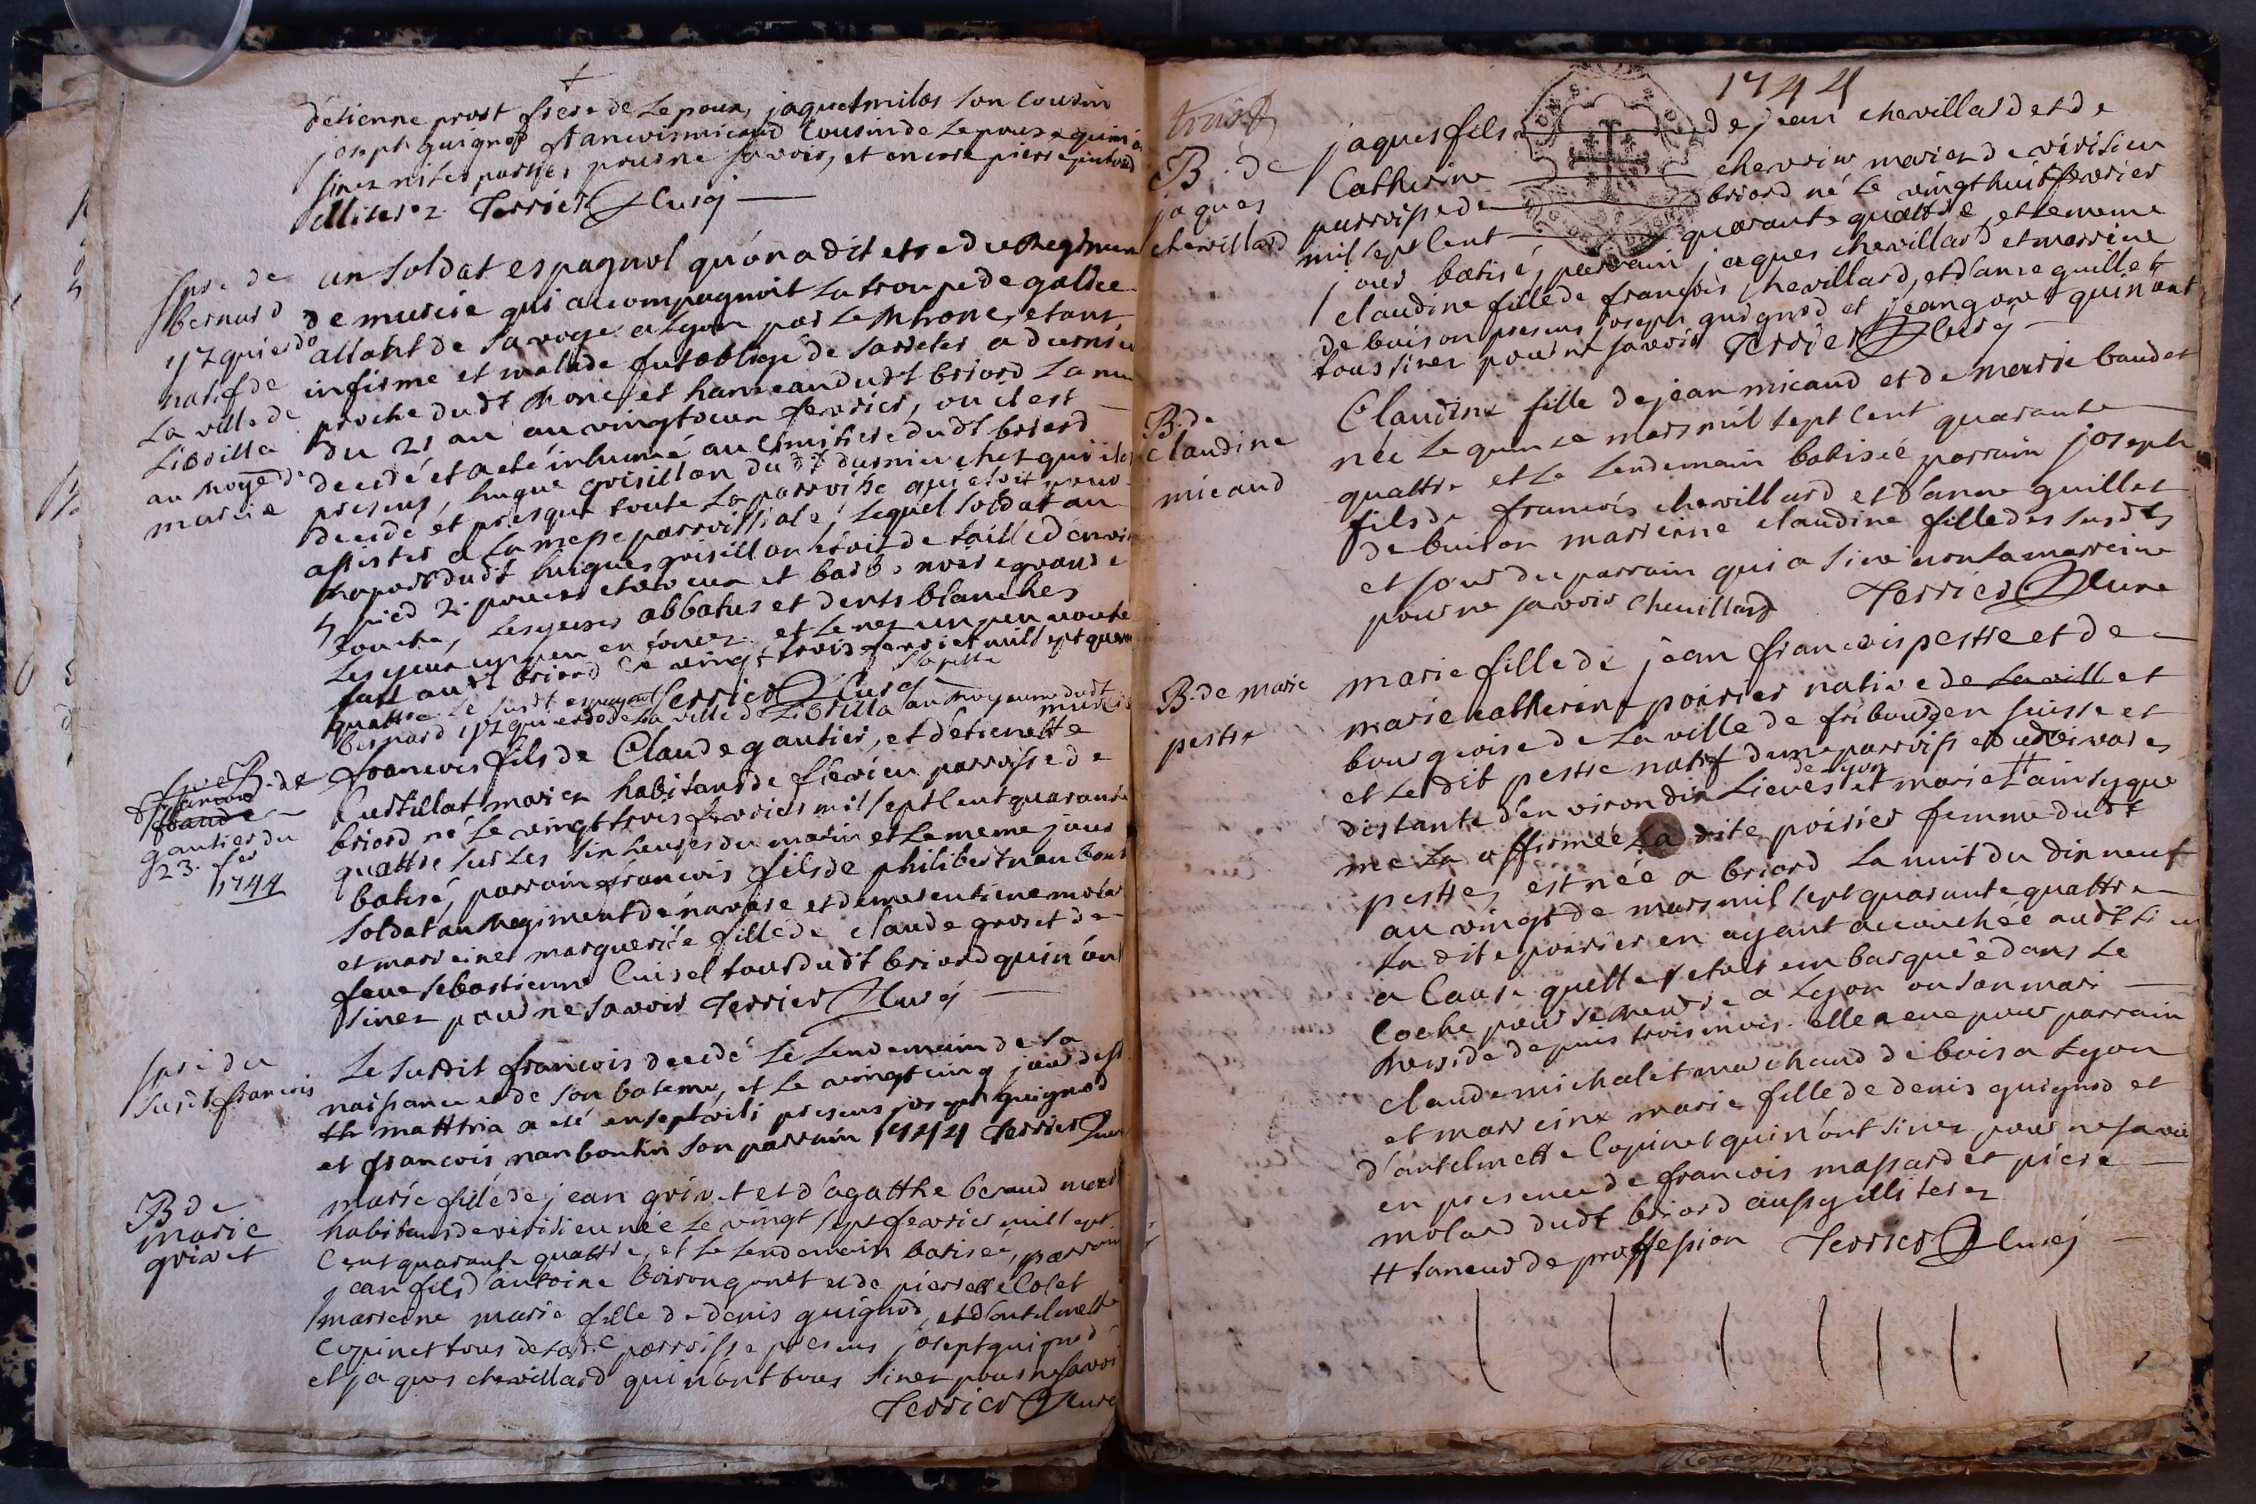 d'etienne prost frere de lepoux, jaquet milos son cousin
joseph guignod francois micaud cousin de lepouse qui n'ont
sinez ni les parties pour ne savoir, et encore pierre
illiterez. Terrier Curé
spre de
bernard
yzquierdo
natif de
la ville de
librilla
au royē de
murcie
un soldat espagnol qu'on a dit etre du Regiment
de murcie qui accompagnoit la troupe de galice
allant de savoye a lyon par le Rhone, etant
infirme et malade fut obligé de sarreter a dornieu
proche dudt Rone et hameau dudt briord la nuit
du 21 au au vingtdeux fevrier, ou il est
decedé et a eté inhumé au cimitiere dudt briord
presens, hugue grisillon dudt durnieu chez qui il est
decedé et presque toute la parroisse qui etoit pour
assister a la messe parroissiale, lequel soldat au
raport dudt hugues grisillon etoit de taille d'environ
5 pied 2 pouces cheveux et barbe noire grande
bouche, les yeux abbatus et dents blanches
les yeux un peu en foncez et le nez un peu voute
fait audt briord ce vingt trois fevrier mil sept quarante
quattre Terrier Curé
le susdt espagnol s'apelle
bernard yzquierdo de la ville de librilla au royaume dudt murcie
B. de
francois
gautier du
23. fer
1744
francois fils de Claude gautier, et d'etienette
Curtillat mariez habitans de flevieu parroisse de
briord né le vingt trois fevrier mil sept cent quarante
quattre sur les six heures du matin et le meme jour
batisé, parrain francois fils de philibert nanbontin
soldat au Regiment de navare et demeurentiene molar
et marreine marguerite fille de claude groset de
feue sebastienne Cuisel tous dudt briord qui n'ont
sinez pour ne savoir Terrier Curé
spre du
susdt francois
Le susdit francois decedé le lendemain de sa
naissance et de son bateme, et le vingt cinq jour de st
th mattria a eté ensepveli presens joseph guignod
et francois nanbontin son parrain 1744 Terrier Curé
B de
marie
grivet
marie fille de jean grivet et d'agatthe beraud mariez
habitans de verisieu née le vingt sept fevrier mil sept
Cent quarante quattre, et le lendemain batisée, parrain
jean fils d'antoine boirongonet et de pierrette Colet
marreine marie fille de denis guignod, et d'antelmette
Copinet tous de ladte parroisse presens josept guignod
et jaques chevillard qui n'ont tous sinez pour ne savoir
Terrier Curé
1744
B. de
jaques
chevillard
jaques fils de jean chevillard et de
Catherine chevrier mariez de verisieu
parroisse de briord né le vingt huit fevrier
mil sept Cent quarante quattre, et le meme
jour batisé, parrain jaques chevillard et marreine
claudine fille de francois chevillard, et d'anne guillet
de buison presens joseph guignod et jean gonet qui n'ont
tous sinez pour ne savoir Terrier Curé
B. de
claudine
micaud
Claudine fille de jean micaud et de marie baudet
née le quinze mars mil sept Cent quarante
quattre et le lendemain batisée parrain joseph
fils de francois chevillard et d'anne guillet
de buison marreine claudine fille des susdts
et soeur du parrain qui a siné non la marreine
pour ne savoir Chevillard Terrier Cure
B. de marie
pestre
marie fille de jean francois pestre et de
marie catherine poirier native de la vill et
bourgeoise de la ville de fribourg en suisse et
et ledit pestre natif dune parroisse
distante d'environ dix lieues de lyon et marie H ainsy que
me la affirmée la dite poirier femme dudt
pestre, est née a briord la nuit du dix neuf
au vingt de mars mil sept quarante quattre
la dite poirier en ayant accouchée audt lieu
a Cause quelle s'etoit embarquée dans le
Coche pour se rendre a Lyon ou son mari
Reside depuis trois mois. elle a eue pour parrain
claude michalet marchand de bois a Lyon
et marreine marie fille de denis guignod et
d'antelmette Copinet qui n'ont sinez pour ne savoir
en presence de francois massard et piere
molard dudt briord aussy illiterez
H taneur de proffession Terrier Curé